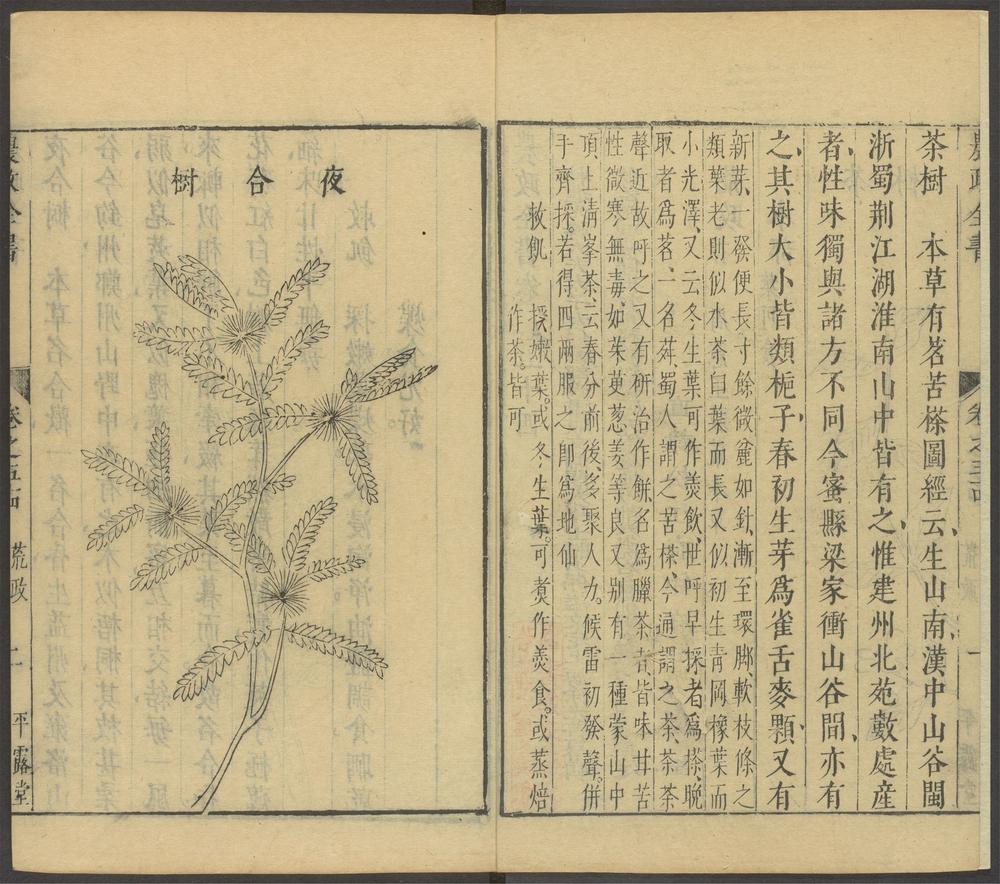 茶樹　本草有茗苦㮈圖經云生山南漢中山谷閩
浙蜀荆江湖淮南山中皆有之惟建州北苑數處産
者性味獨與諸方不同今蜜縣梁家衝山谷間亦有
之其樹大小皆類梔子春初生芽爲雀舌麥顆又有
新芽一發便長寸餘微麄如針漸至環脚軟枝條之
類葉老則似水茶臼葉而長又似初生青岡橡葉而
小光澤又云冬生葉可作羮飲世呼早採者爲㮈晚
取者爲茗一名荈蜀人謂之苦㮈今通謂之茶茶茶
聲近故呼之又有研治作餅名爲臘茶者皆味甘苦
性微寒無毒如茱萸葱姜等良又别有一種蒙山中
頂上清峯茶云春分前後多聚人力候雷初發聲併
手齊採若得四兩服之卽爲地仙
救飢　採嫩葉或冬生葉可煑作羮食或蒸焙
作茶皆可
夜合樹
卷之五十四　荒政　二　平露堂